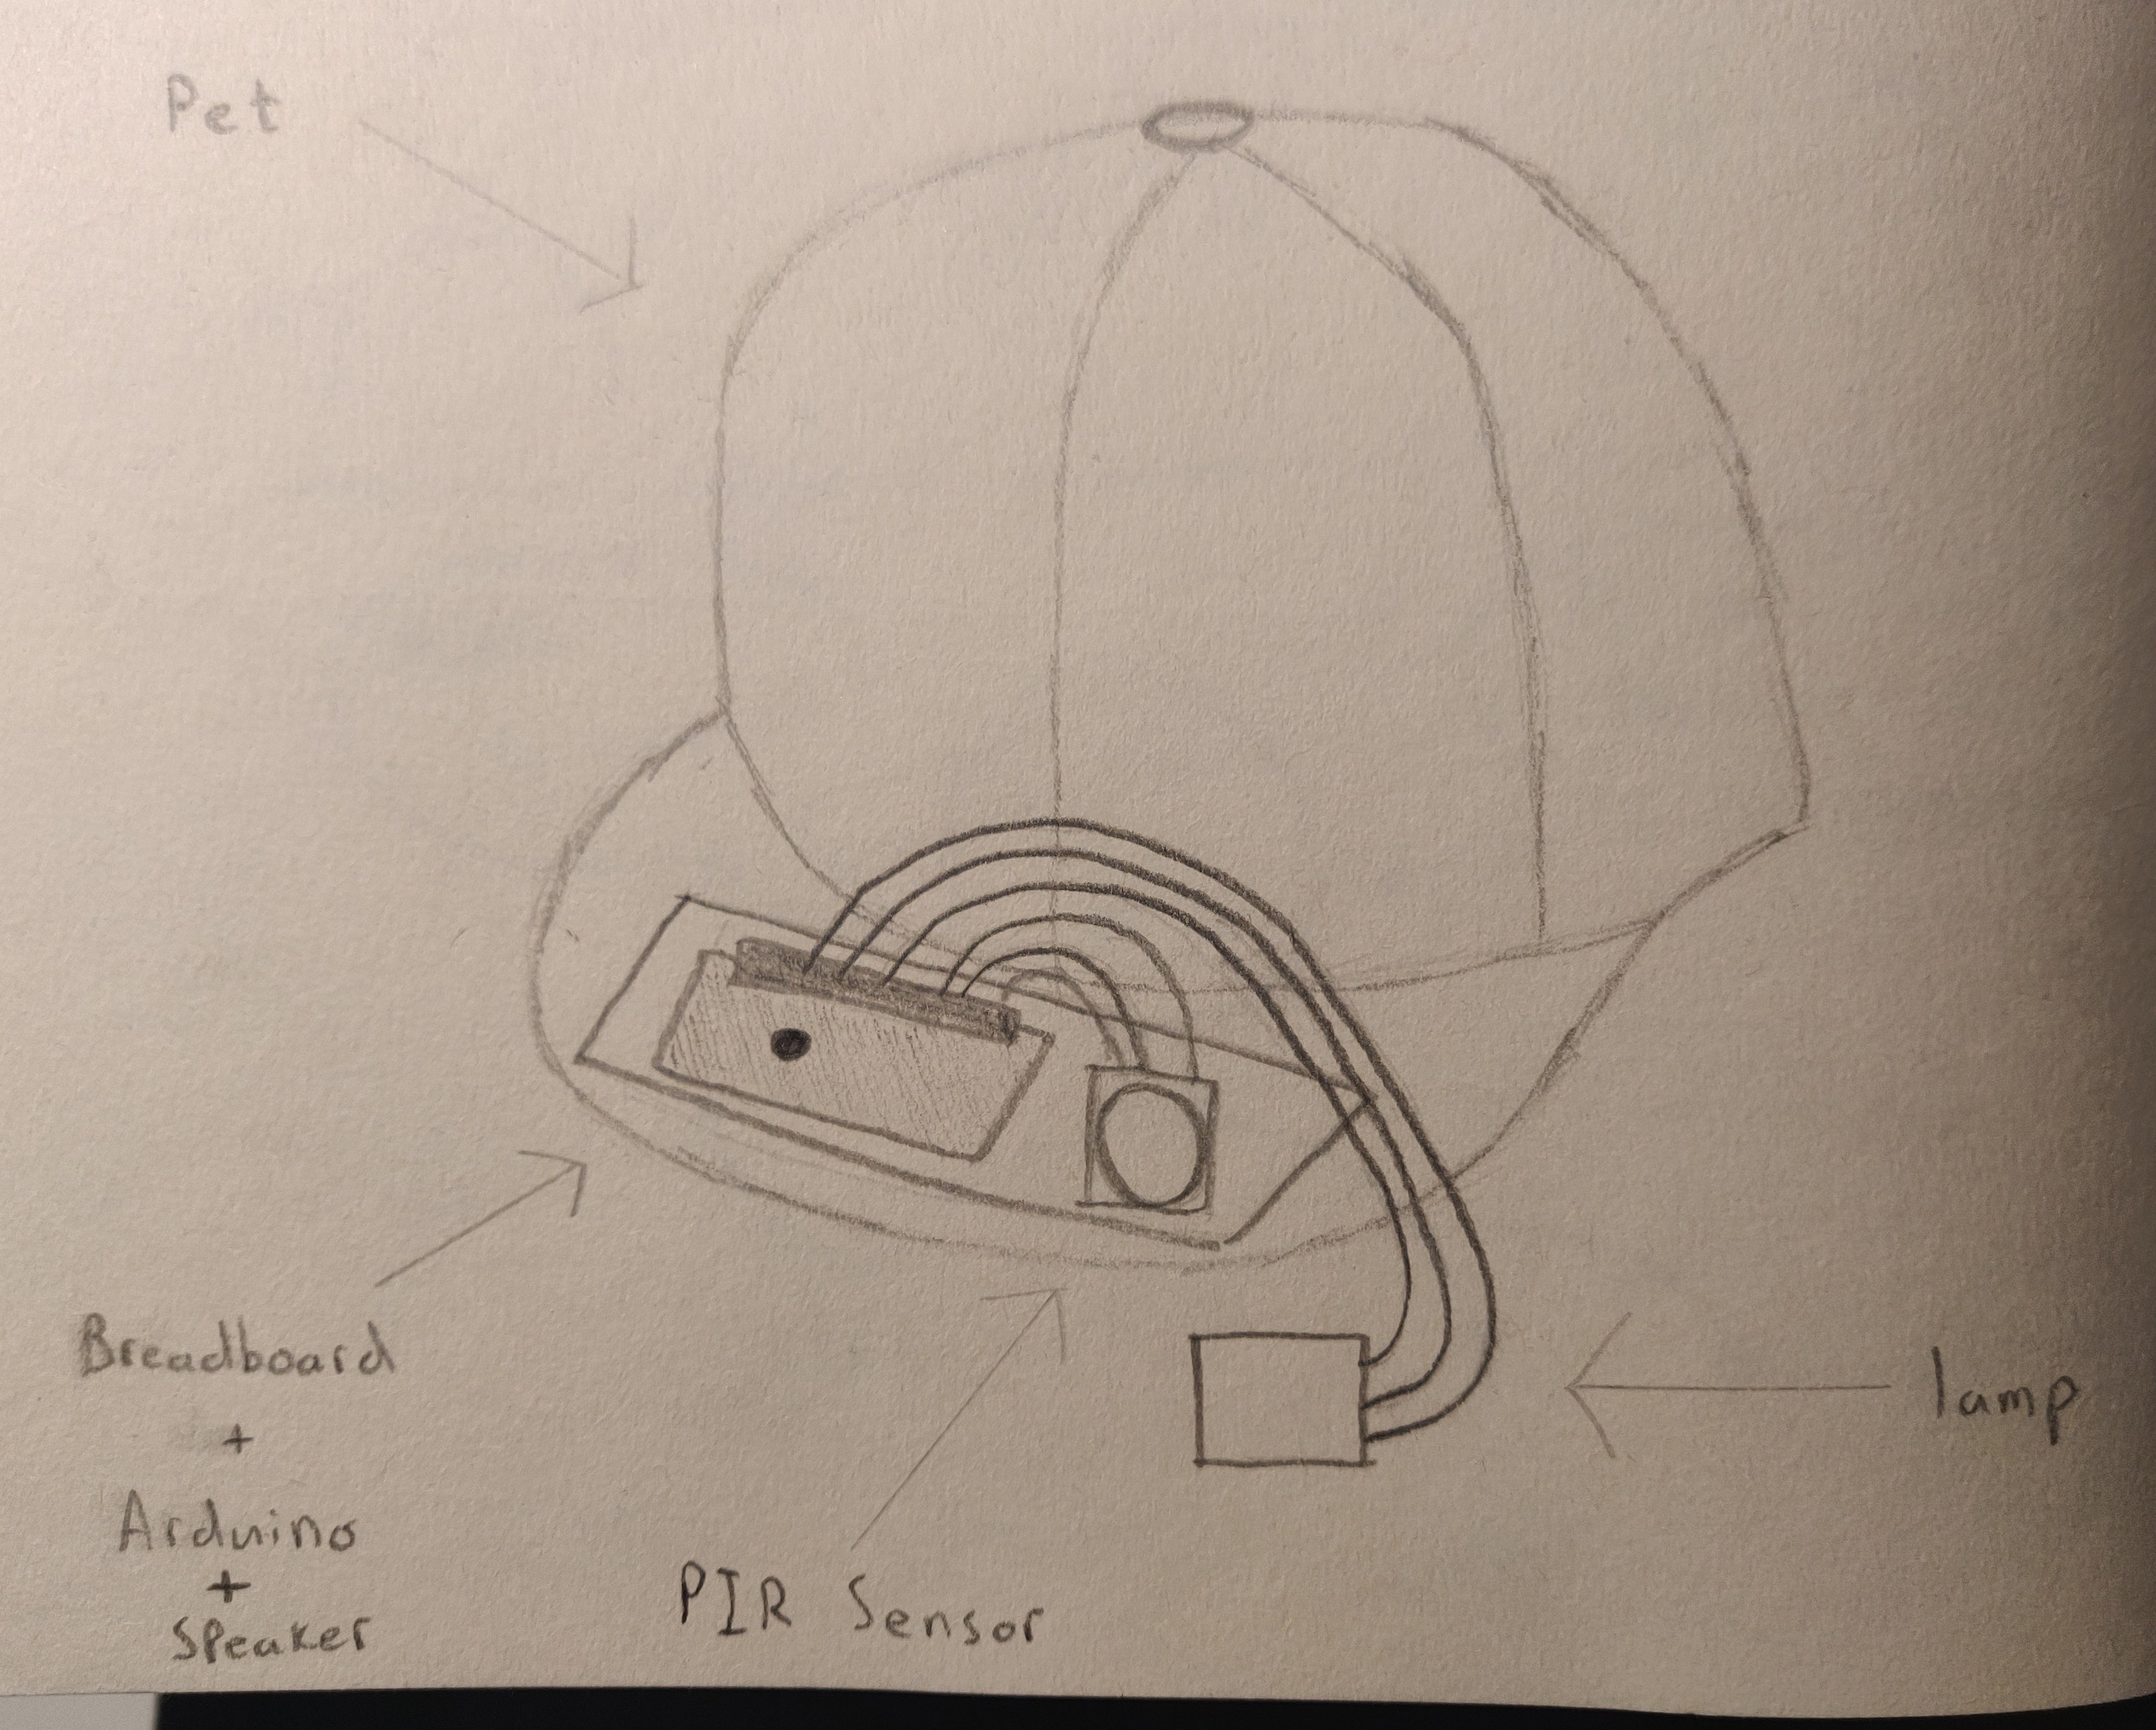 Pet
Breadboard
+
Arduino
+
Speaker
PIR Sensor
lamp